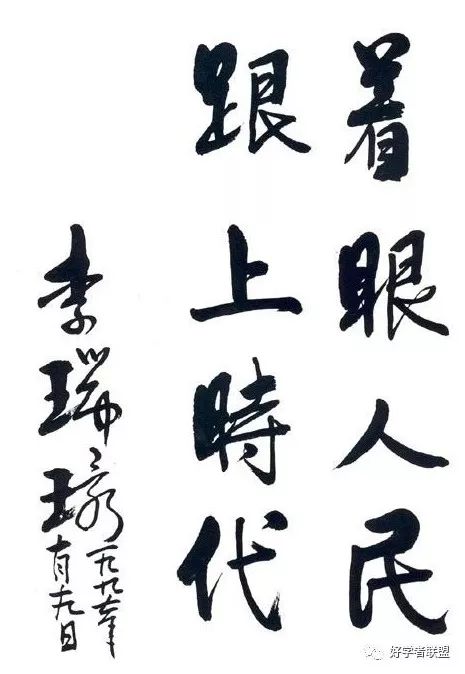 着眼人民
跟上時代
李瑞環
一九九年
月九日
好学者联盟